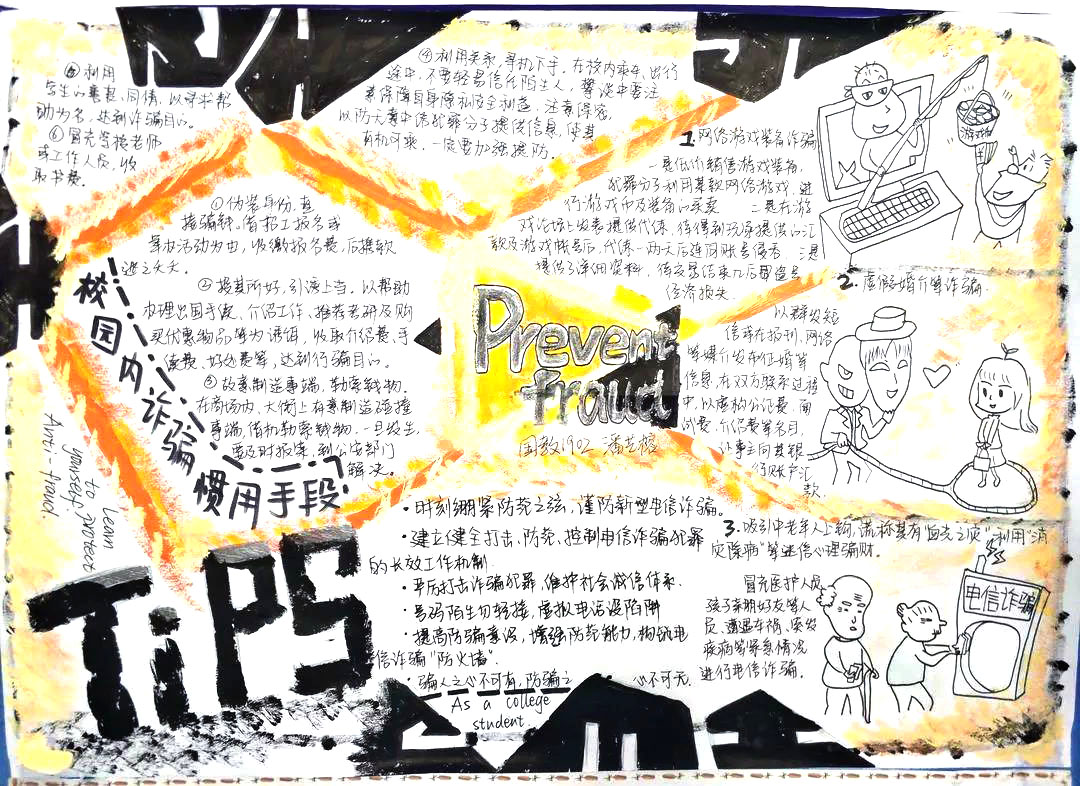 ④利用卖家,寻机下手。在校内乘车、出行
途中,不要轻易信任陌生人,
以防
有机可乘。一定要加强提防。
⑤利用
学生的善良、同情,以寻求帮
助为名,达到诈骗目的。
⑥冒充学校老师
或工作人员,收
取书费。
①伪装身份,直
接骗钱,借招工报名或
举办活动为由,收缴报名费,后携款
逃之夭夭。
②投其所好,引诱上当。以帮助
办理出国手续、介绍工作、推荐考研及购
买优惠物品等为诱饵,收取介绍费、手
续费、好处费等,达到行骗目的。
③故意制造事端,勒索钱物。
在商场内、大街上故意制造碰撞
事端,借机勒索钱物,一旦发生,
要及时报案,到公安部门
解决。
校园内诈骗
惯用手段
to Learn
yourself protect
Anti-fraud
Prevent
fraud
国教1902
1.网络游戏装备诈骗
一是低价销售游戏装备,
犯罪分子利用某款网络游戏,进
行游戏币及装备的买卖 二是在游
戏论坛上发表提供代练,待得到玩家提供的汇
款及游戏帐号后,代练一两天后连同账号侵吞。三是
经济损失
游戏币
2.虚假婚介等诈骗
以群发短
信或在报刊、网络
等媒介发布征婚等
信息,在双方联系过程
中,以虚构公证费、面
试费、介绍费等名目,
让事主向其银
行账户汇
款.
3.吸引中老年人上钩,谎称其有“血光之灾”,利用“消
灾除病”等迷信心理骗财。
冒充医护人员
孩子亲朋好友等人
员、遭遇车祸、突发
疾病等紧急情况
进行电信诈骗.
电信诈骗
TiPS
•时刻绷紧防范之弦,谨防新型电信诈骗。
•建立健全打击、防范、控制电信诈骗犯罪
的长效工作机制.
•严厉打击诈骗犯罪,维护社会诚信体系.
•号码陌生勿轻接,虚拟电话设陷阱
•提高防骗意识,增强防范能力,构筑电
信诈骗“防火墙”.
•骗人之心不可有,防骗之 心不可无.
As a college
student.